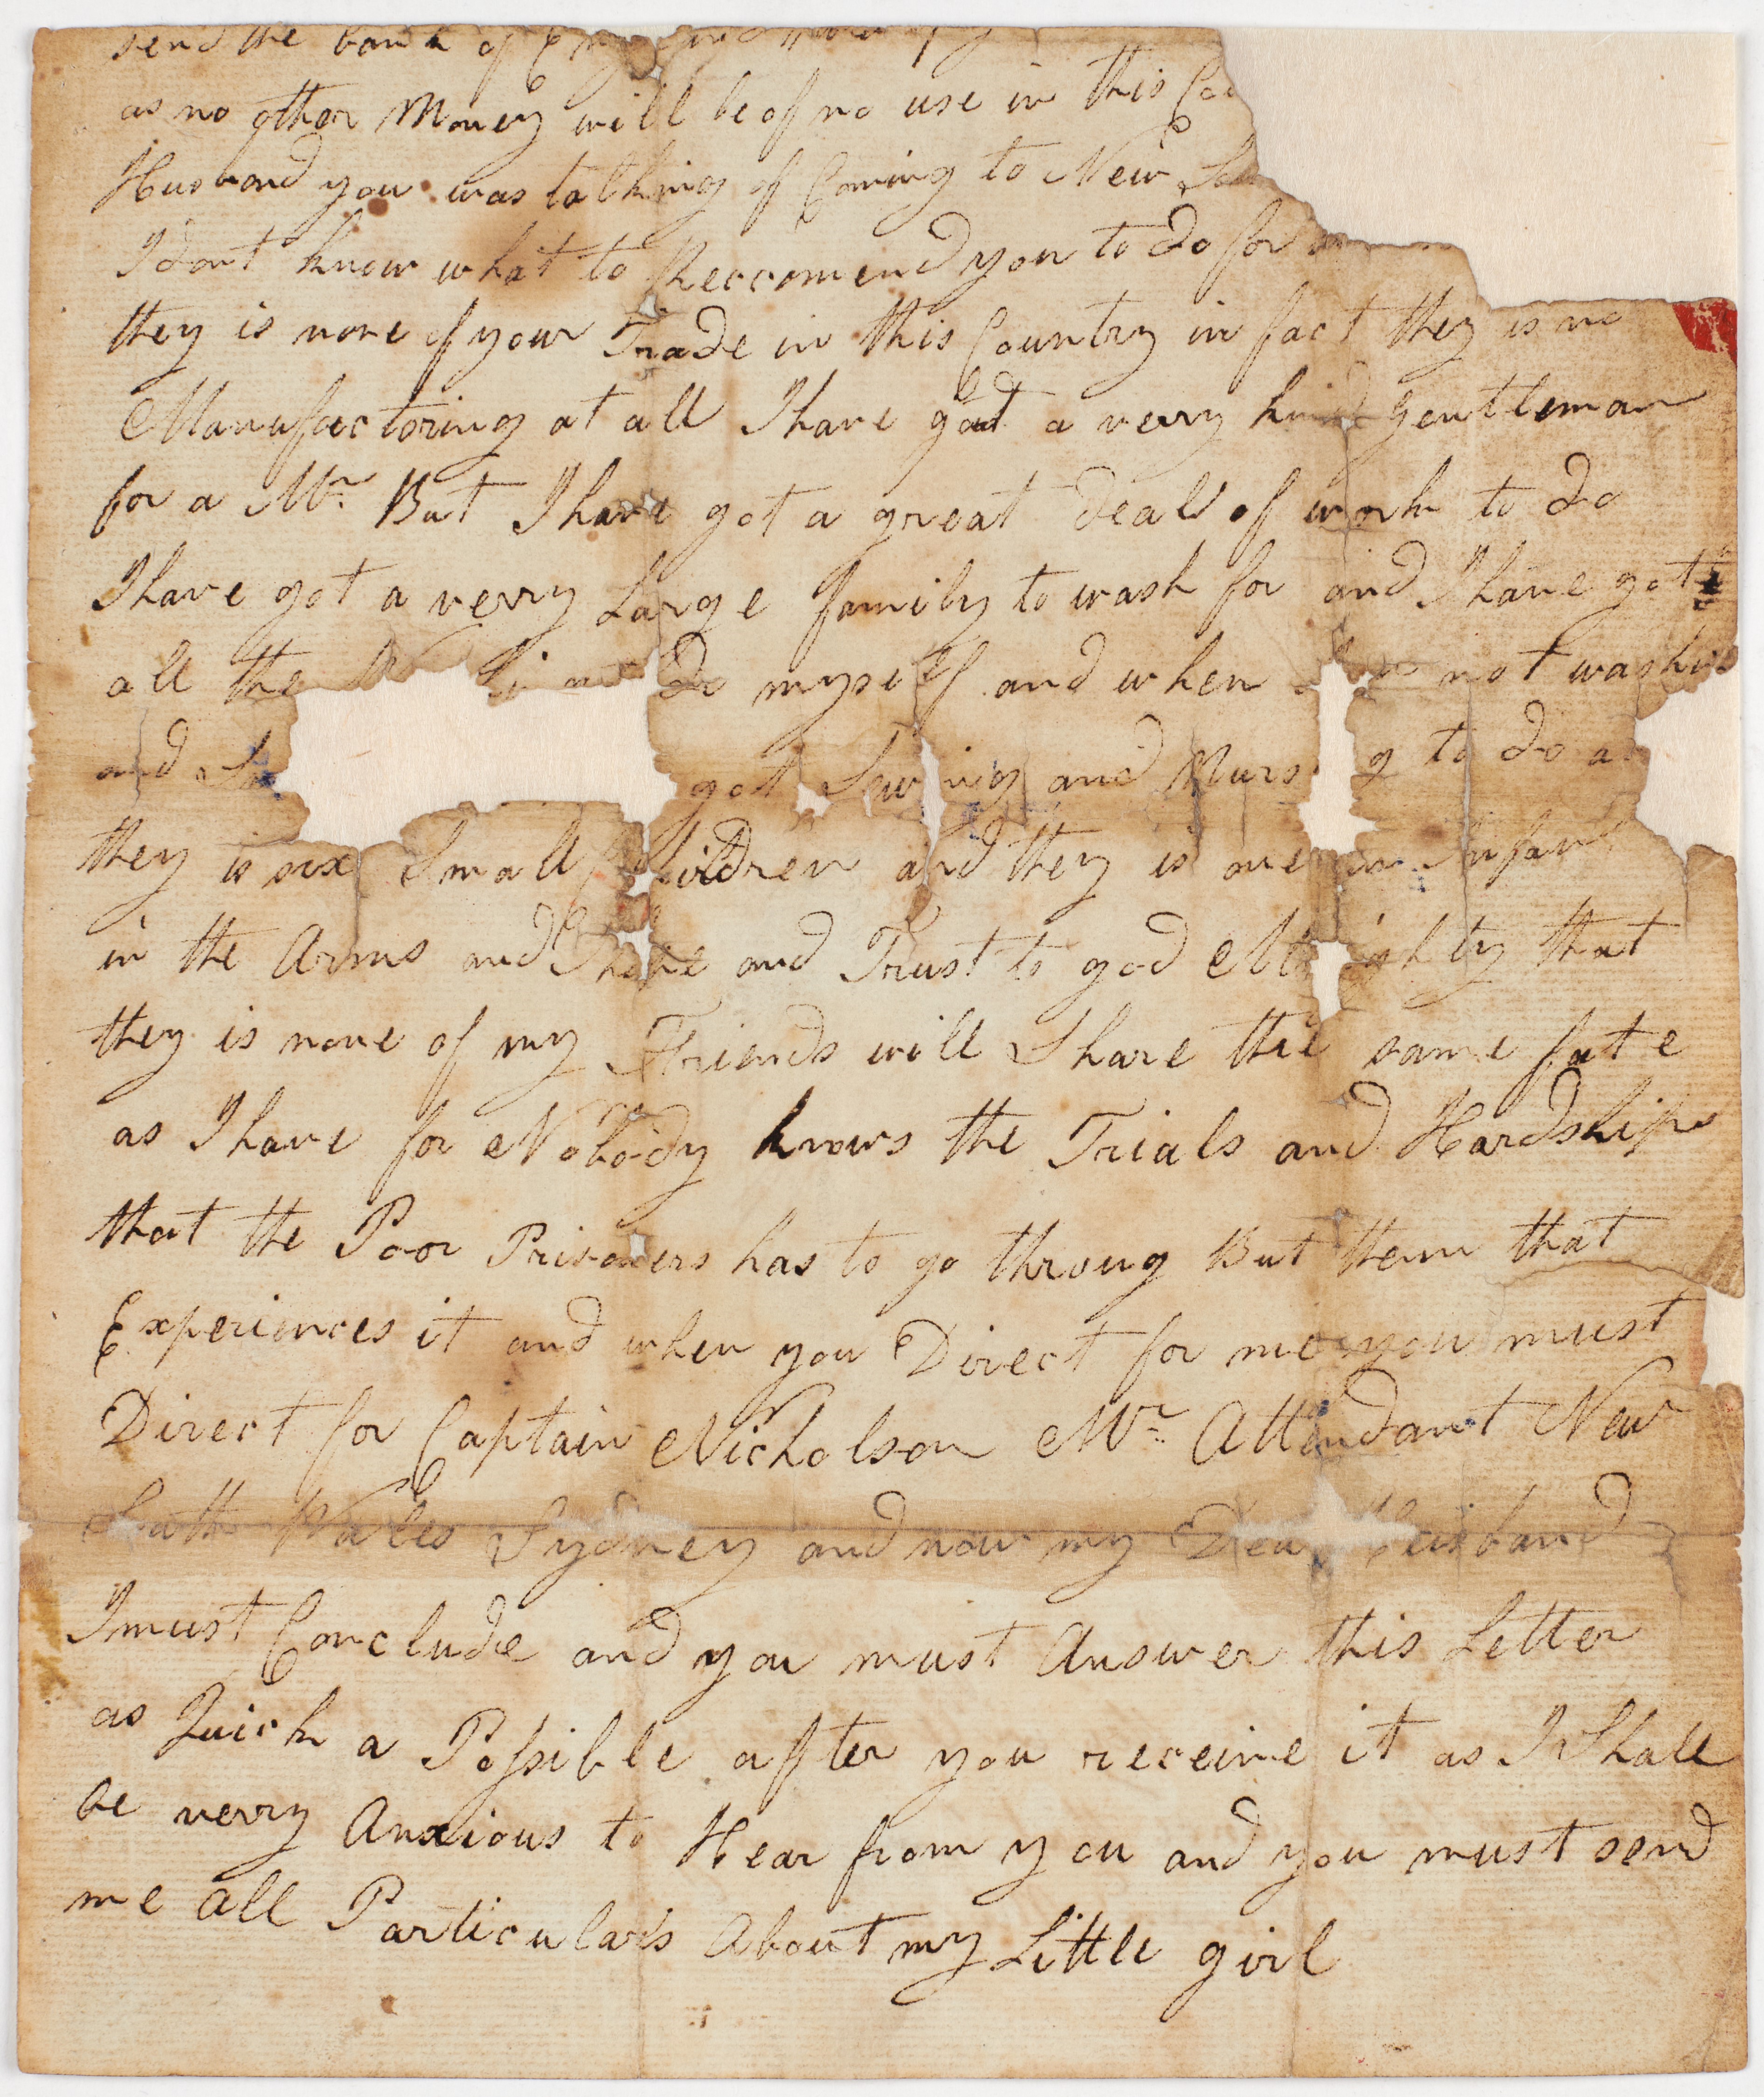 send the bank of
as no other Money will be of no use in this
Husband you was talking of Coming to New
I dont know what to Reccomend you to do for
they is none of your Trade in this Country in fact they is no
Manuffactoring at all I have got a very kind gentleman
for a Mr. But I have got a great deal of work to do
I have got a verry Large family to wash for and I have got
all the do myself and when not washing
and got Sewing and Nursing to do
they is six Small Children and they is one an Infant
in the Arms and I hope and Trust to god Almighty that
they is none of my Friends will Share the same fate
as I have for Nobody knows the Trials and Hardships
that the Poor Prisoners has to go throug But them that
Experiences it and when you Direct for me you must
Direct for Captain Nicholson Mr. Attendant New
South Wales Sydney and now my Dear Husband
I must Conclude and you must Answer this Letter
as Quick a Possible after you receive it as I Shall
be verry Anxious to Hear from you and you must send
me all Particulars About my Little girl